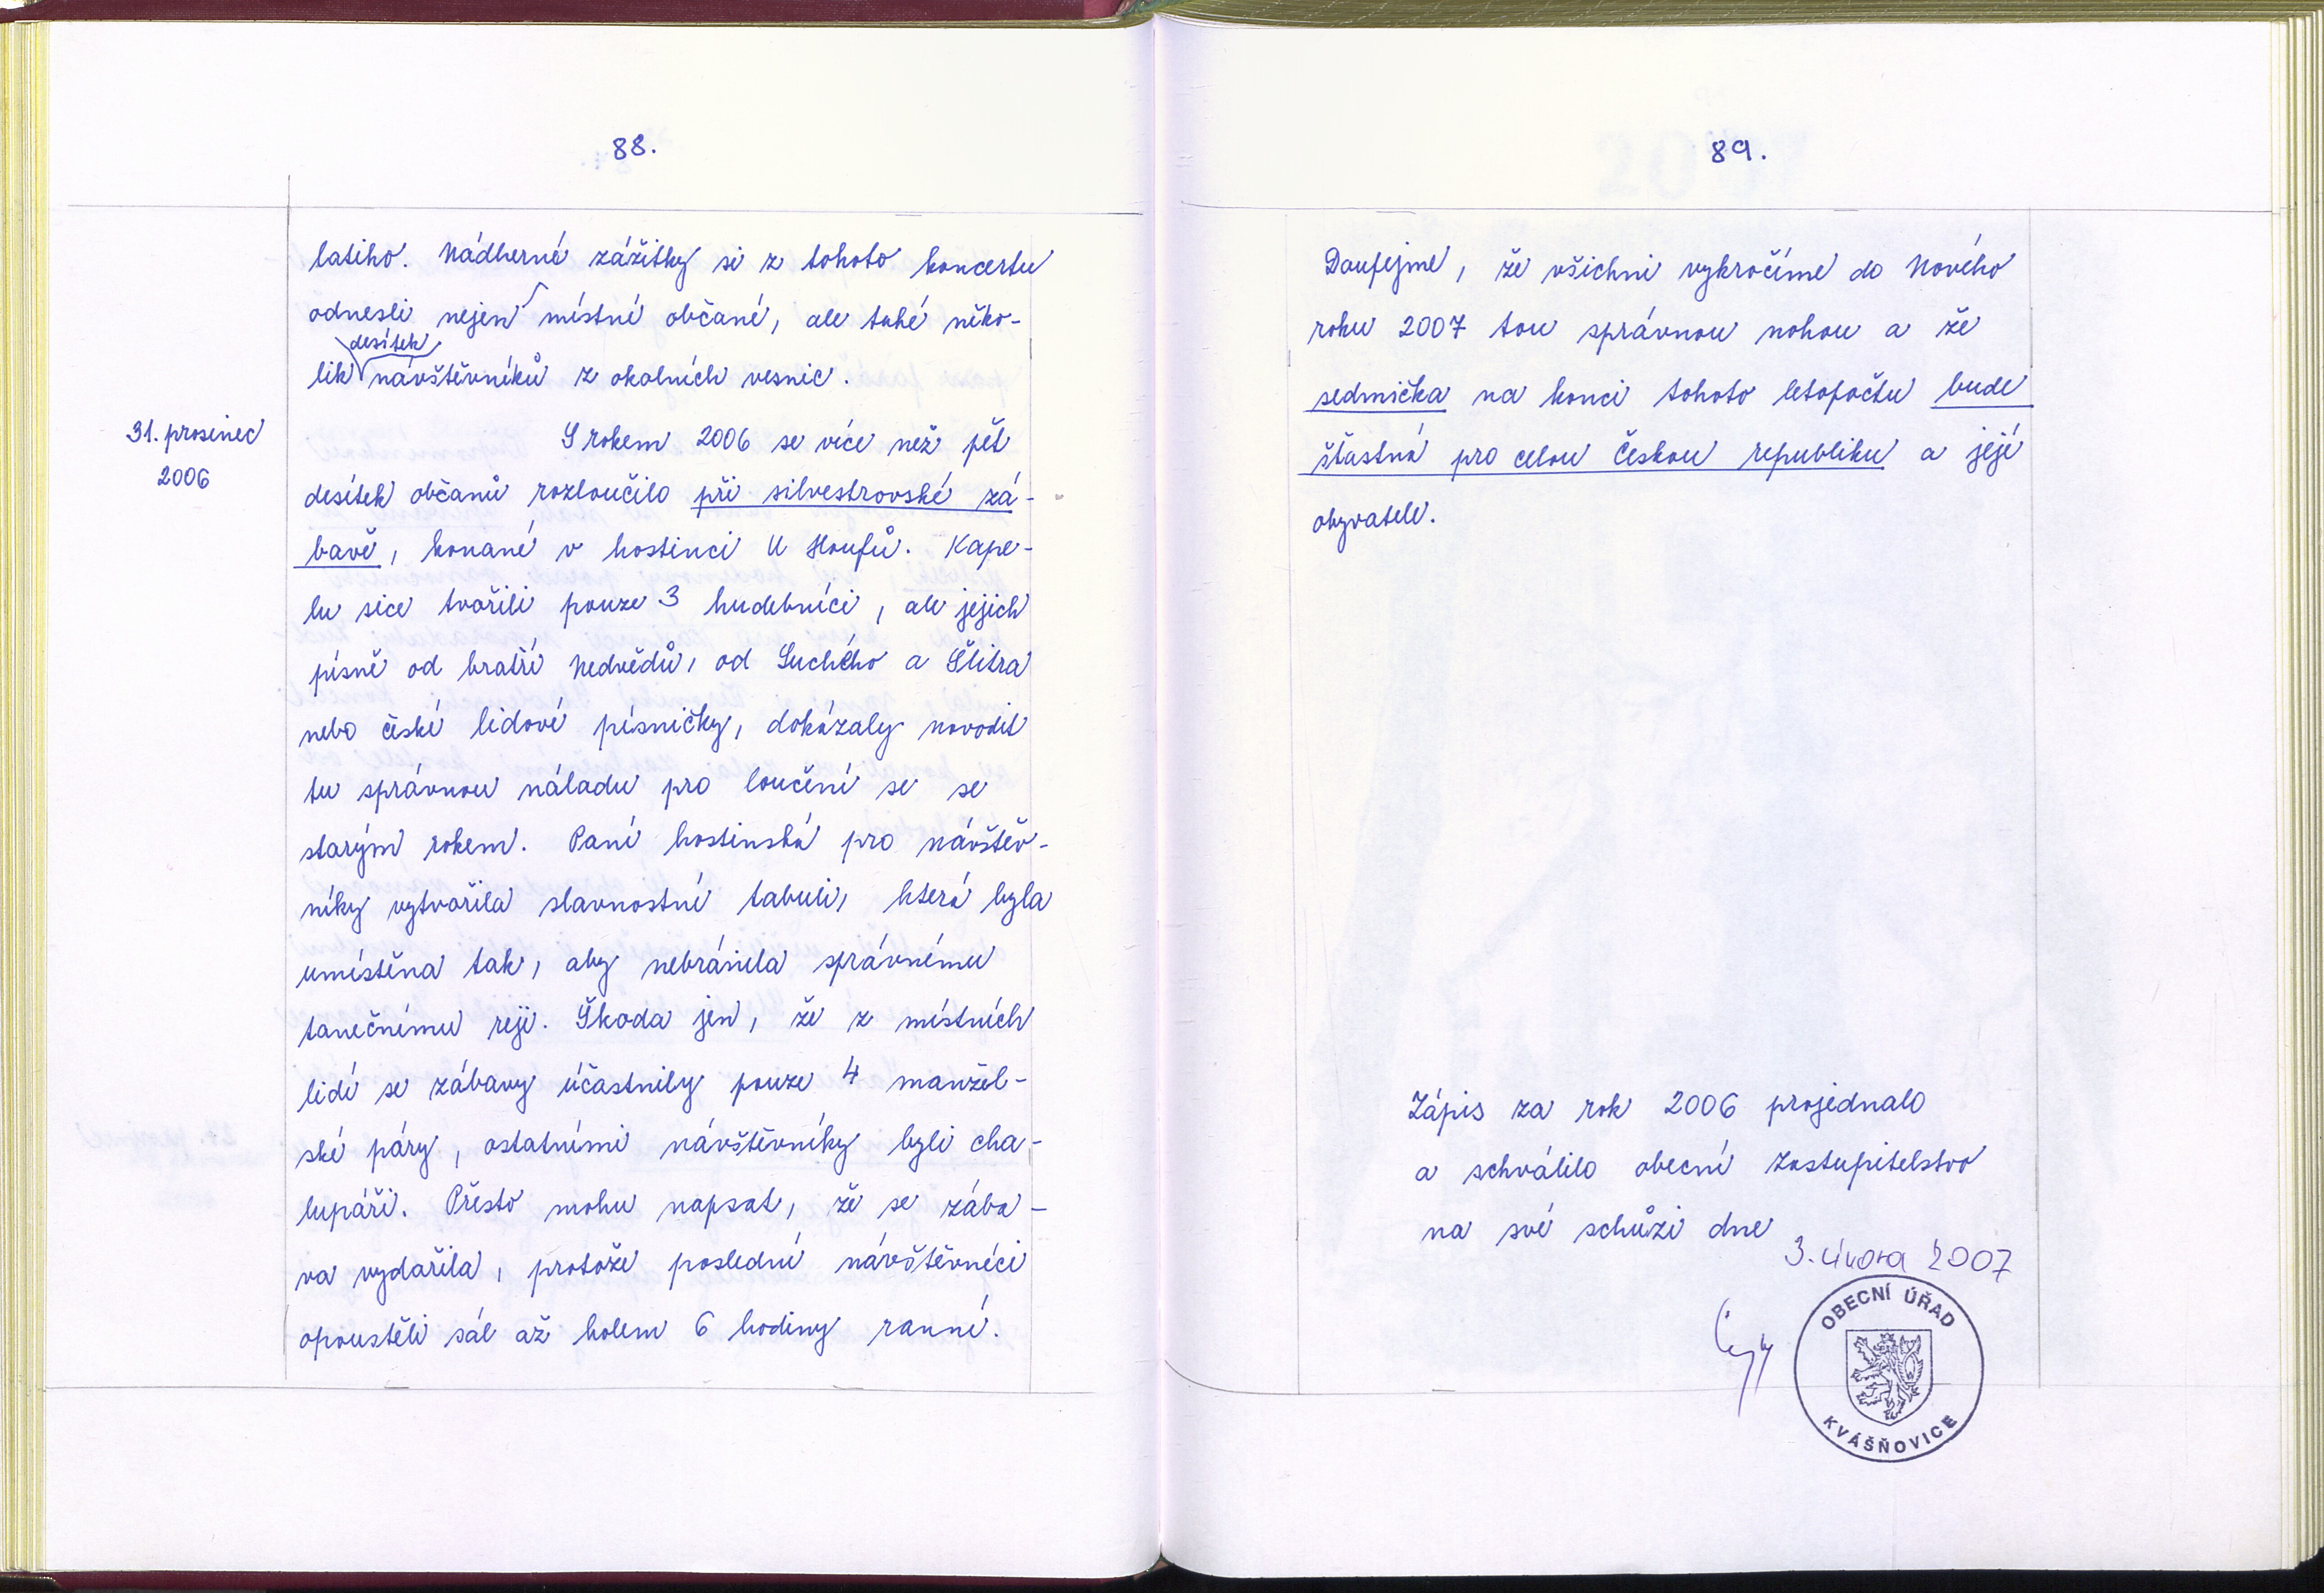 88.
latiho. Nádherné zážitky si z tohoto koncertu
odnesli nejen místní občané, ale také něko-
desítek
lik návštěvníků z okolních vesnic.
31. prosinec
2006
S rokem 2006 se více než pět
desítek občanů rozloučilo při silvestrovské zá-
bavě, konané v hostinci U Houfů. Kape-
lu sice tvořili pouze 3 hudebníci, ale jejich
písně od bratří Nedvědů, od Suchého a Šlitra
nebo české lidové písničky, dokázaly navodit
tu správnou náladu pro loučení se se
starým rokem. Paní hostinská pro návštěv-
níky vytvořila slavnostní tabuli, která byla
umístěna tak, aby nebránila správnému
tanečnímu reji. Škoda jen, že z místních
lidí se zábavy účastnily pouze 4 manžel-
ské páry, ostatními návštěvníky byli cha-
lupáři. Přesto mohu napsat, že se zába-
va vydařila, protože poslední návštěvníci
opouštěli sál až kolem 6 hodiny ranní.
89.
Doufejme, že všichni vykročíme do Nového
roku 2007 tou správnou nohou a že
sedmička na konci tohoto letopočtu bude
šťastná pro celou Českou republiku a její
obyvatele.
Zápis za rok 2006 projednalo
a schválilo obecní zastupitelstvo
na své schůzi dne
3. února 2007
OBECNÍ ÚŘAD
KVÁŠŇOVICE